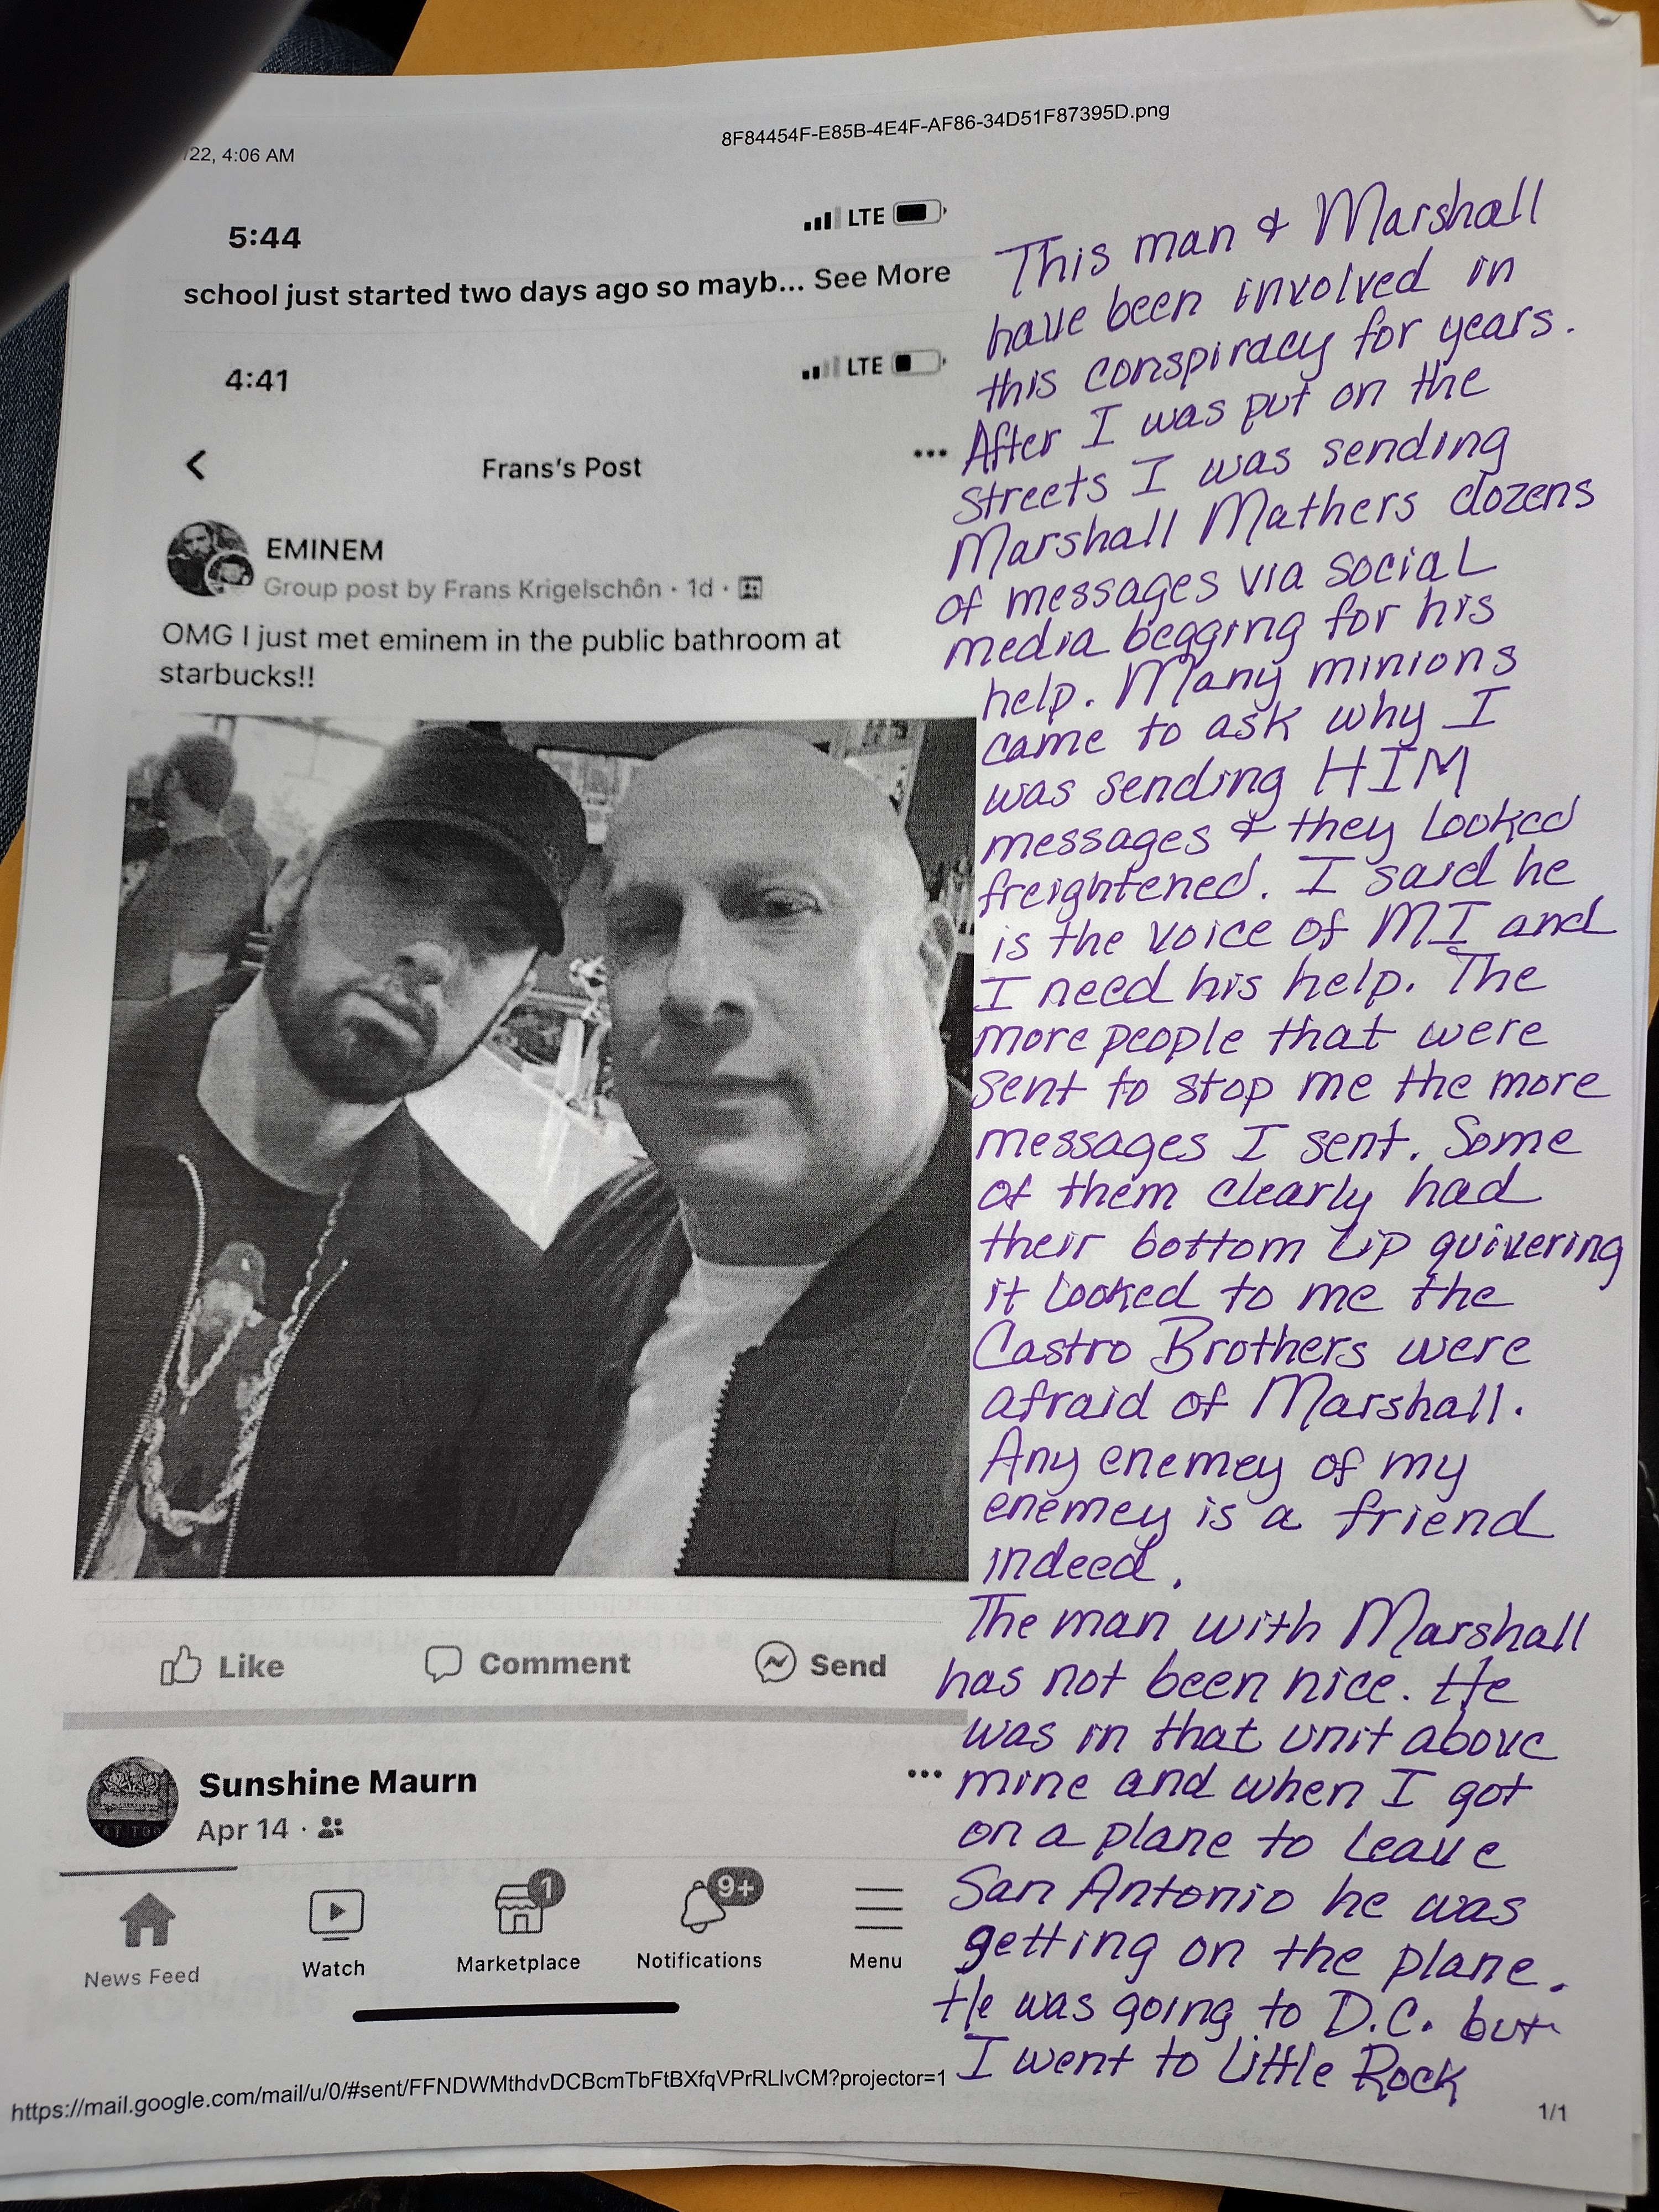 8F84454F-E85B-4E4F-AF86-34D51F87395D.png
/22, 4:06 AM
5:44
LTE
school just started two days ago so mayb... See More
4:41
LTE
Frans's Post
EMINEM
Group post by Frans Krigelschôn · 1d ·
OMG I just met eminem in the public bathroom at
starbucks!!
Like
Comment
Send
Sunshine Maurn
Apr 14 ·
1
9+
News Feed
Watch
Marketplace
Notifications
Menu
https://mail.google.com/mail/u/0/#sent/FFNDWMthdvDCBcmTbFtBXfqVPrRLlvCM?projector=1
1/1
This man & Marshall
have been involved in
this conspiracy for years.
After I was put on the
streets I was sending
Marshall Mathers dozens
of messages via social
media begging for his
help. Many minions
came to ask why I
was sending HIM
messages & they looked
freightened. I said he
is the voice of MI and
I need his help. The
more people that were
sent to stop me the more
messages I sent. Some
of them clearly had
their bottom lip quivering
it looked to me the
Castro Brothers were
afraid of Marshall.
Any enemey of my
enemey is a friend
indeed.
The man with Marshall
has not been nice. He
was in that unit above
mine and when I got
on a plane to leave
San Antonio he was
getting on the plane.
He was going to D.C. but
I went to Little Rock